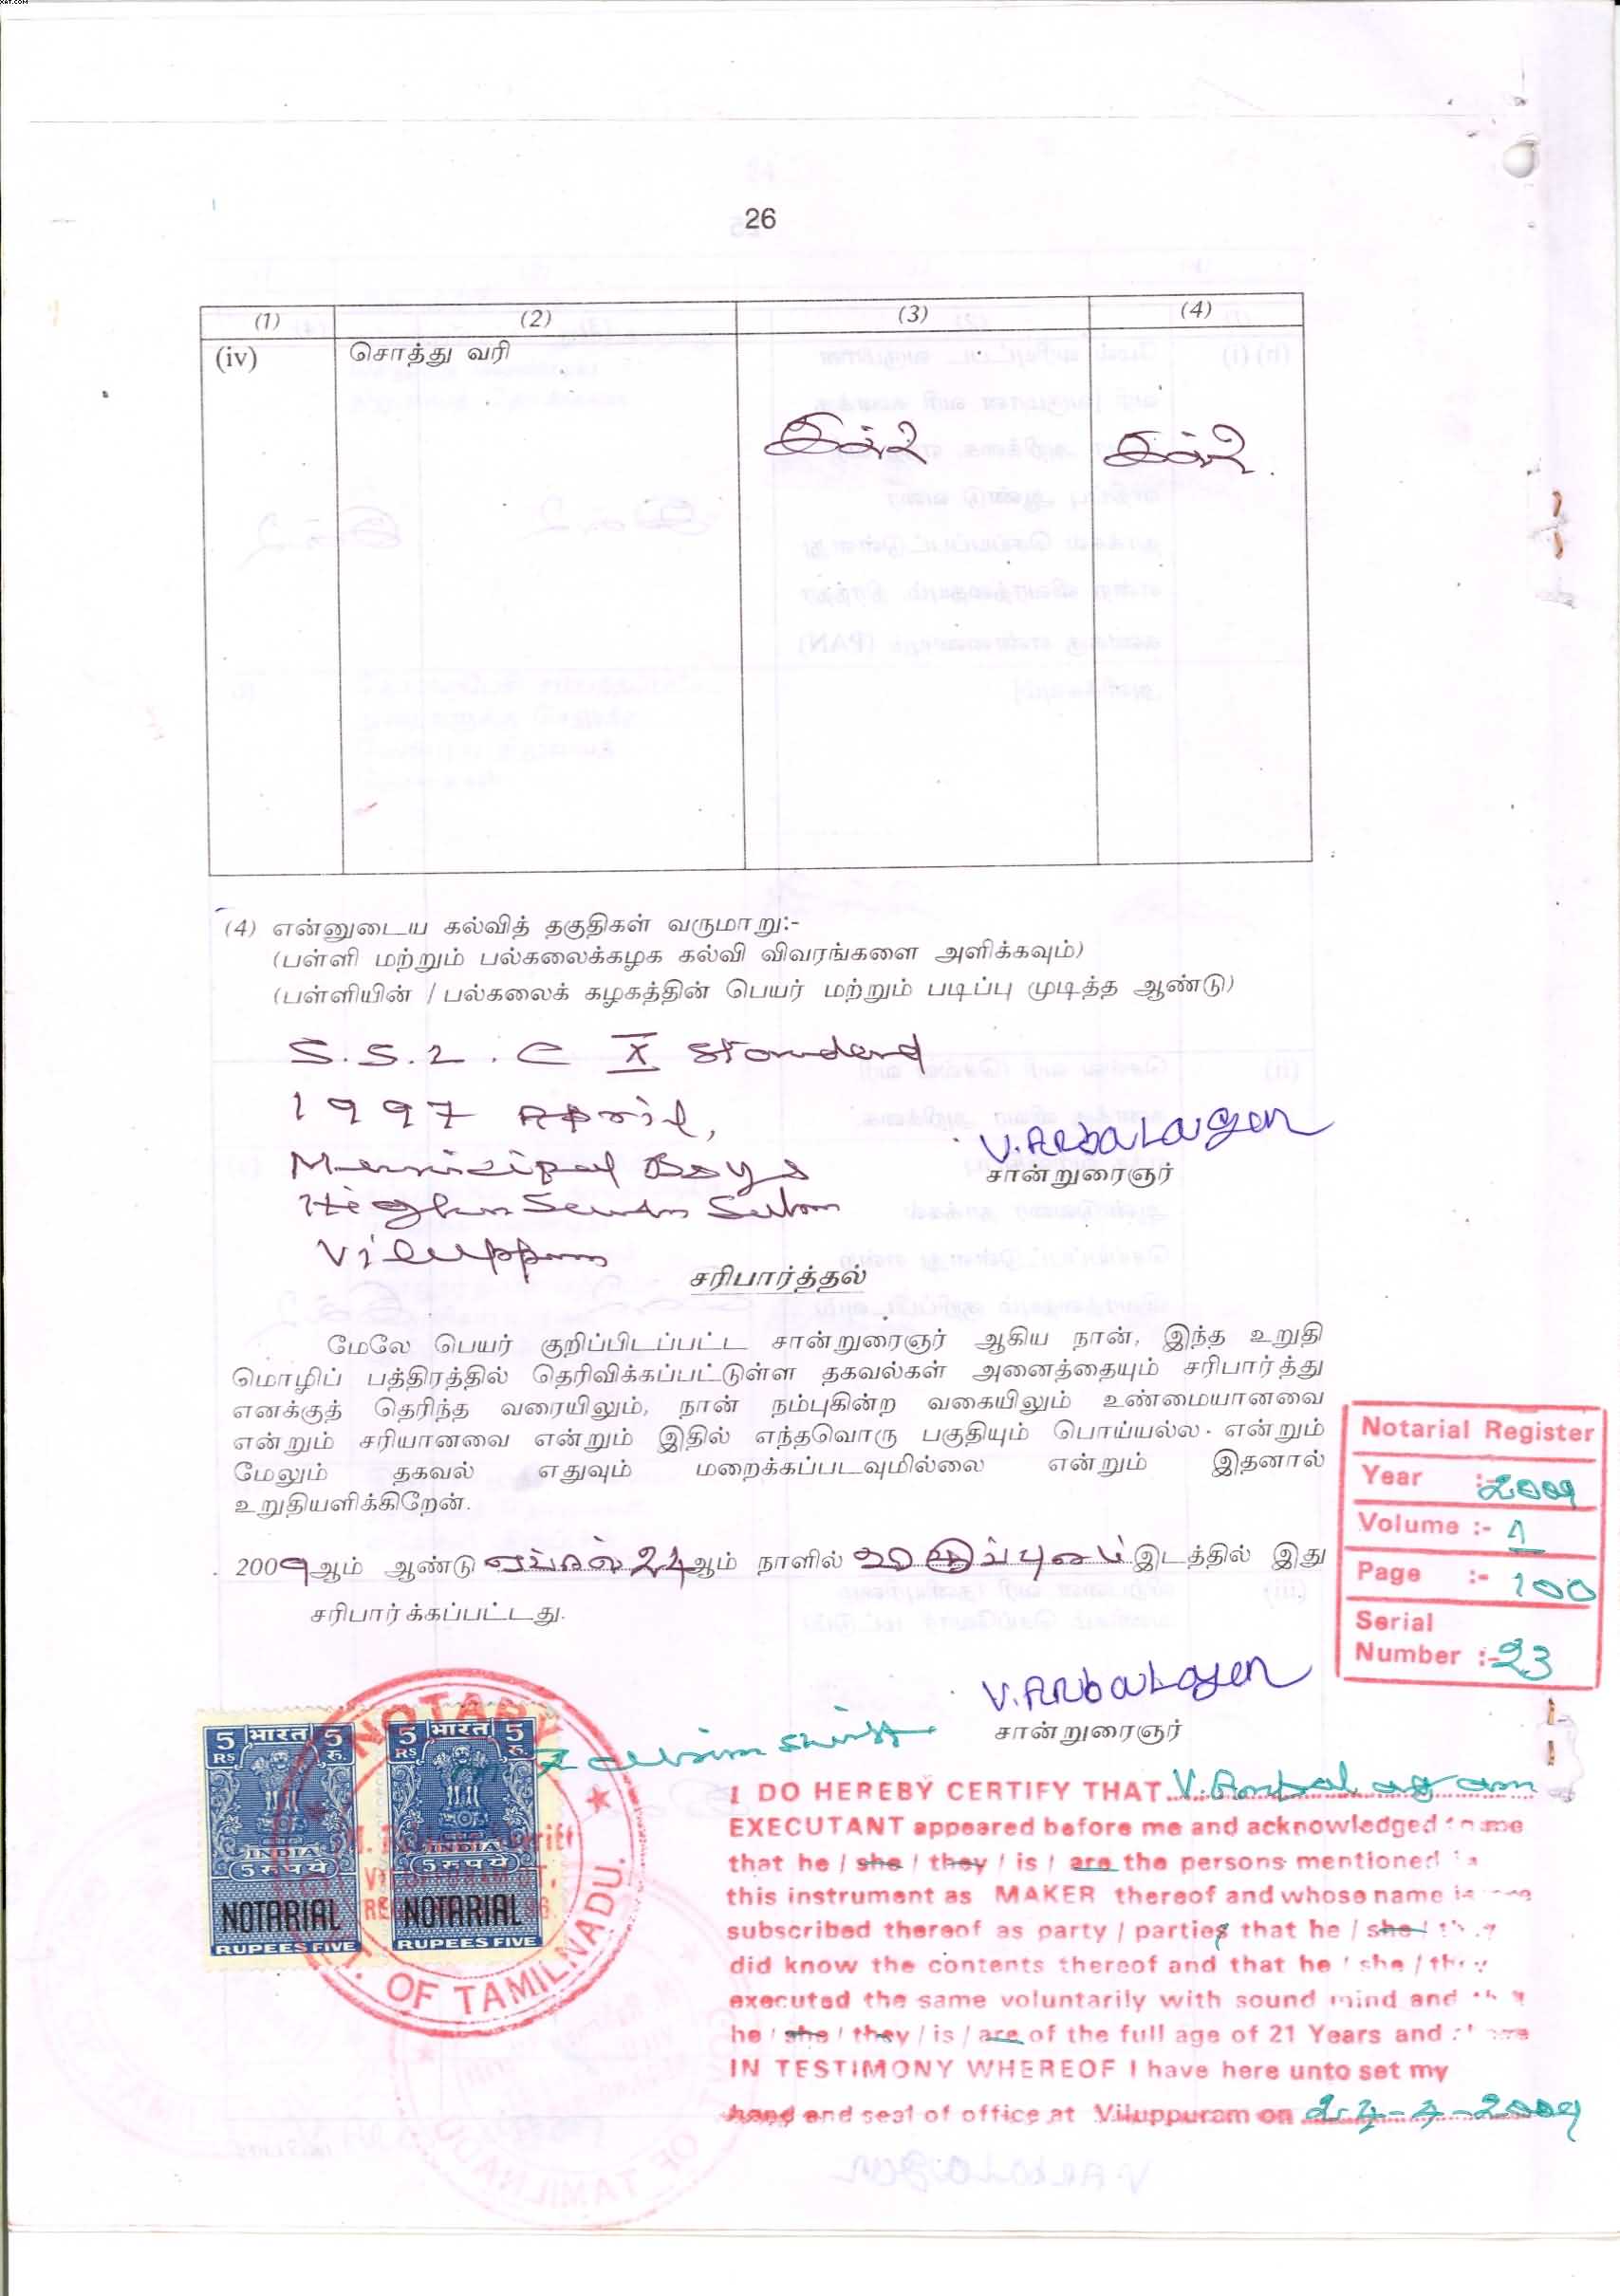 26
(1) (2) (3) (4)
(iv) சொத்து வரி இல்லை இல்லை
(4) என்னுடைய கல்வித் தகுதிகள் வருமாறு:-
(பள்ளி மற்றும் பல்கலைக்கழக கல்வி விவரங்களை அளிக்கவும்)
(பள்ளியின் / பல்கலைக் கழகத்தின் பெயர் மற்றும் படிப்பு முடித்த ஆண்டு)
S.S.L.C X Standard
1997 April,
V.Anbalagan
Municipal Boys
சான்றுரைஞர்
Viluppuram
சரிபார்த்தல்
மேலே பெயர் குறிப்பிடப்பட்ட சான்றுரைஞர் ஆகிய நான், இந்த உறுதி
மொழிப் பத்திரத்தில் தெரிவிக்கப்பட்டுள்ள தகவல்கள் அனைத்தையும் சரிபார்த்து
எனக்குத் தெரிந்த வரையிலும், நான் நம்புகின்ற வகையிலும் உண்மையானவை
என்றும் சரியானவை என்றும் இதில் எந்தவொரு பகுதியும் பொய்யல்ல என்றும்
மேலும் தகவல் எதுவும் மறைக்கப்படவுமில்லை என்றும் இதனால்
உறுதியளிக்கிறேன்.
2009ஆம் ஆண்டு ஏப்ரல் 24ஆம் நாளில் விழுப்புரம் இடத்தில் இது
சரிபார்க்கப்பட்டது.
Notarial Register
Year :- 2009
Volume :- 1
Page :- 100
Serial
Number :- 23
V.Anbalagan
சான்றுரைஞர்
NOTARY
GOVT. OF TAMILNADU.
5 भारत 5
RS रु.
INDIA
5 रुपये
NOTARIAL
RUPEES FIVE
5 भारत 5
RS रु.
INDIA
5 रुपये
NOTARIAL
RUPEES FIVE
I DO HEREBY CERTIFY THAT V.Anbalagan
EXECUTANT appeared before me and acknowledged to me
that he / she / they / is / are the persons mentioned in
this instrument as MAKER thereof and whose name is
subscribed thereof as party / parties that he / she / they
did know the contents thereof and that he / she / they
executed the same voluntarily with sound mind and that
he / she / they / is / are of the full age of 21 Years and
IN TESTIMONY WHEREOF I have here unto set my
hand and seal of office at Viluppuram on 24-4-2009